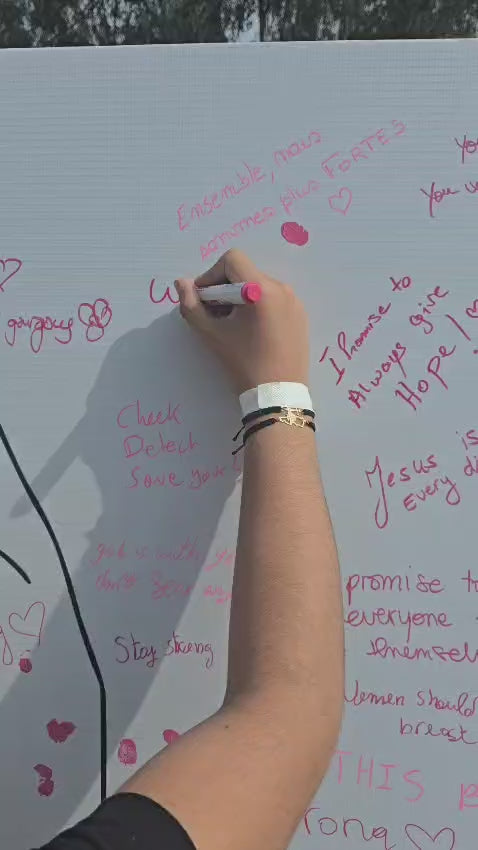 Ensemble, nous
sommes plus FORTES
You
gorgeous
I Promise to
Always give
Hope!
Check
Detect
Save your
Jesus is
Every
god is with you
don't
promise to
everyone
themsel
Stay strong
Women should
breast
THIS